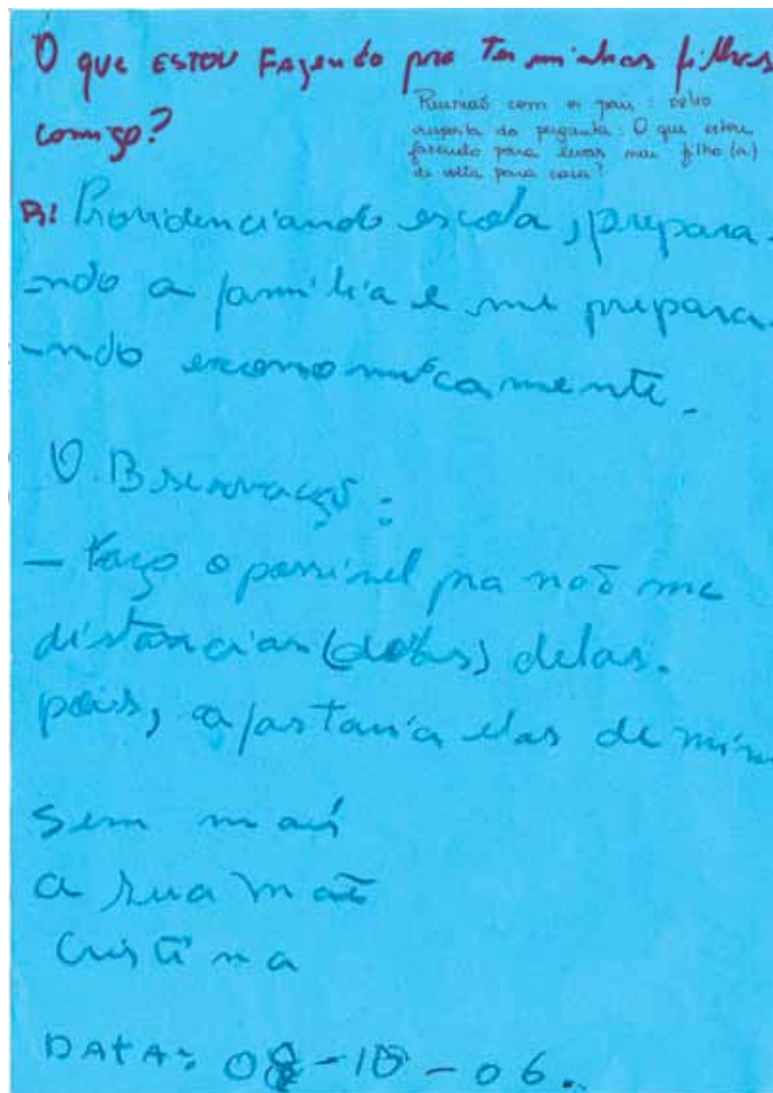 O que ESTOU FAzendo pra Ter minhas filhas
comigo?
Reunião com os pais :
resposta da pergunta : O que estou
fazendo para levar meu filho (a)
de volta para casa?
R: Providenciando escola, prepara-
-ndo a família e me prepara-
-ndo economicamente.
O.Bservação :
- Faço o possível pra não me
distanciar delas.
pois, afastaria elas de mim
Sem mais
a sua mãe
Cristina
DATA: 08-10-06.